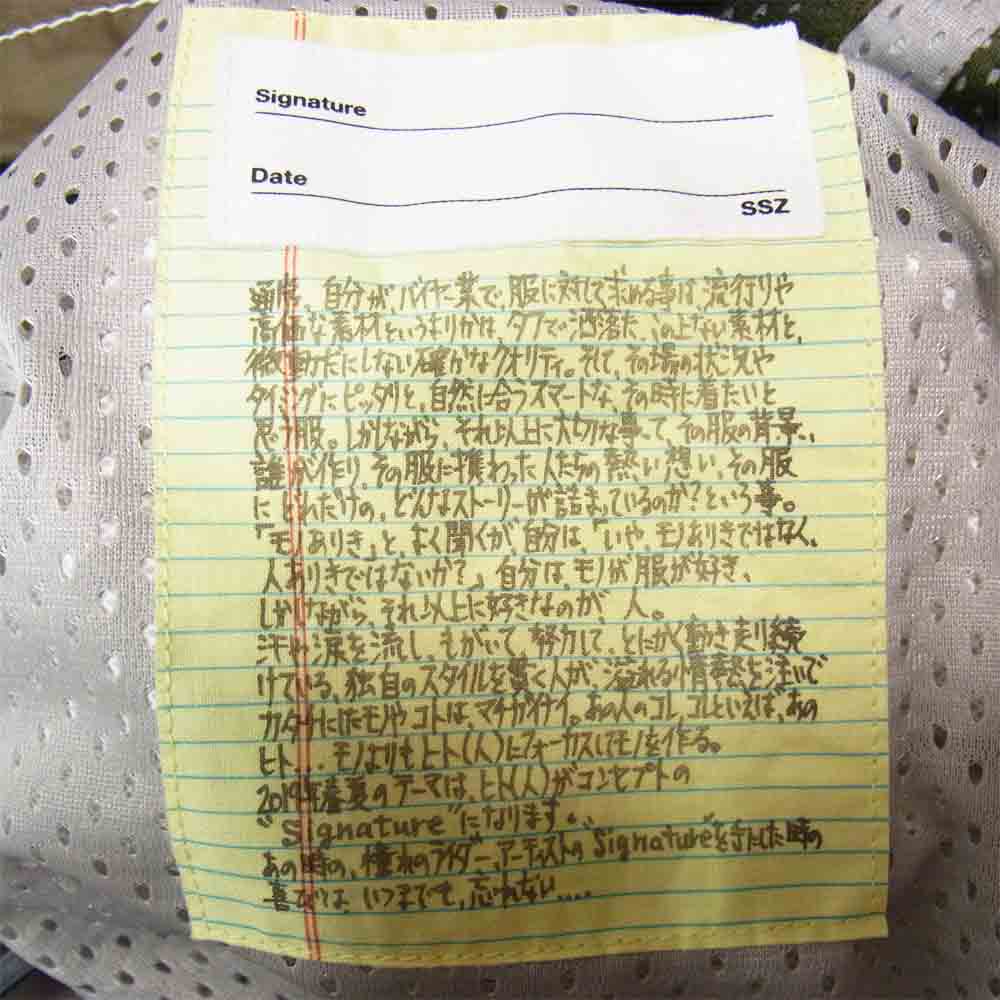 Signature
Date
SSZ
通常、自分が、バイヤー業で、服に対して求める事は、流行りや
高価な素材というよりかは、タフで洒落た、この上ない素材と、
微動だにしない確かなクオリティ。そして、その場の状況や
タイミングにピッタリと、自然に合うスマートな、その時に着たいと
思う服。しかしながら、それ以上に大切な事って、その服の背景、
誰が作り、その服に携わった人たちの熱い想い、その服
にどれだけの、どんなストーリーが詰まっているのか?という事。
「モノありき」と、よく聞くが、自分は、「いや、モノありきではなく、
人ありきではないか?」自分は、モノが服が好き、
しかしながら、それ以上に好きなのが、人。
汗や涙を流し、もがいて、努力して、とにかく動き走り続
けている。独自のスタイルを貫く人が、溢れる情熱を注いで
カタチにしたモノやコトは、マチガイナイ。あの人のコレ、コレといえば、あの
ヒト... モノよりもヒト(人)にフォーカスしてモノを作る。
2019年春夏のテーマは、ヒト(人)がコンセプトの
"Signature"になります。
あの時の、憧れのライダー、アーティストの"Signature"を手にした時の
喜びは、いつまでも、忘れない....